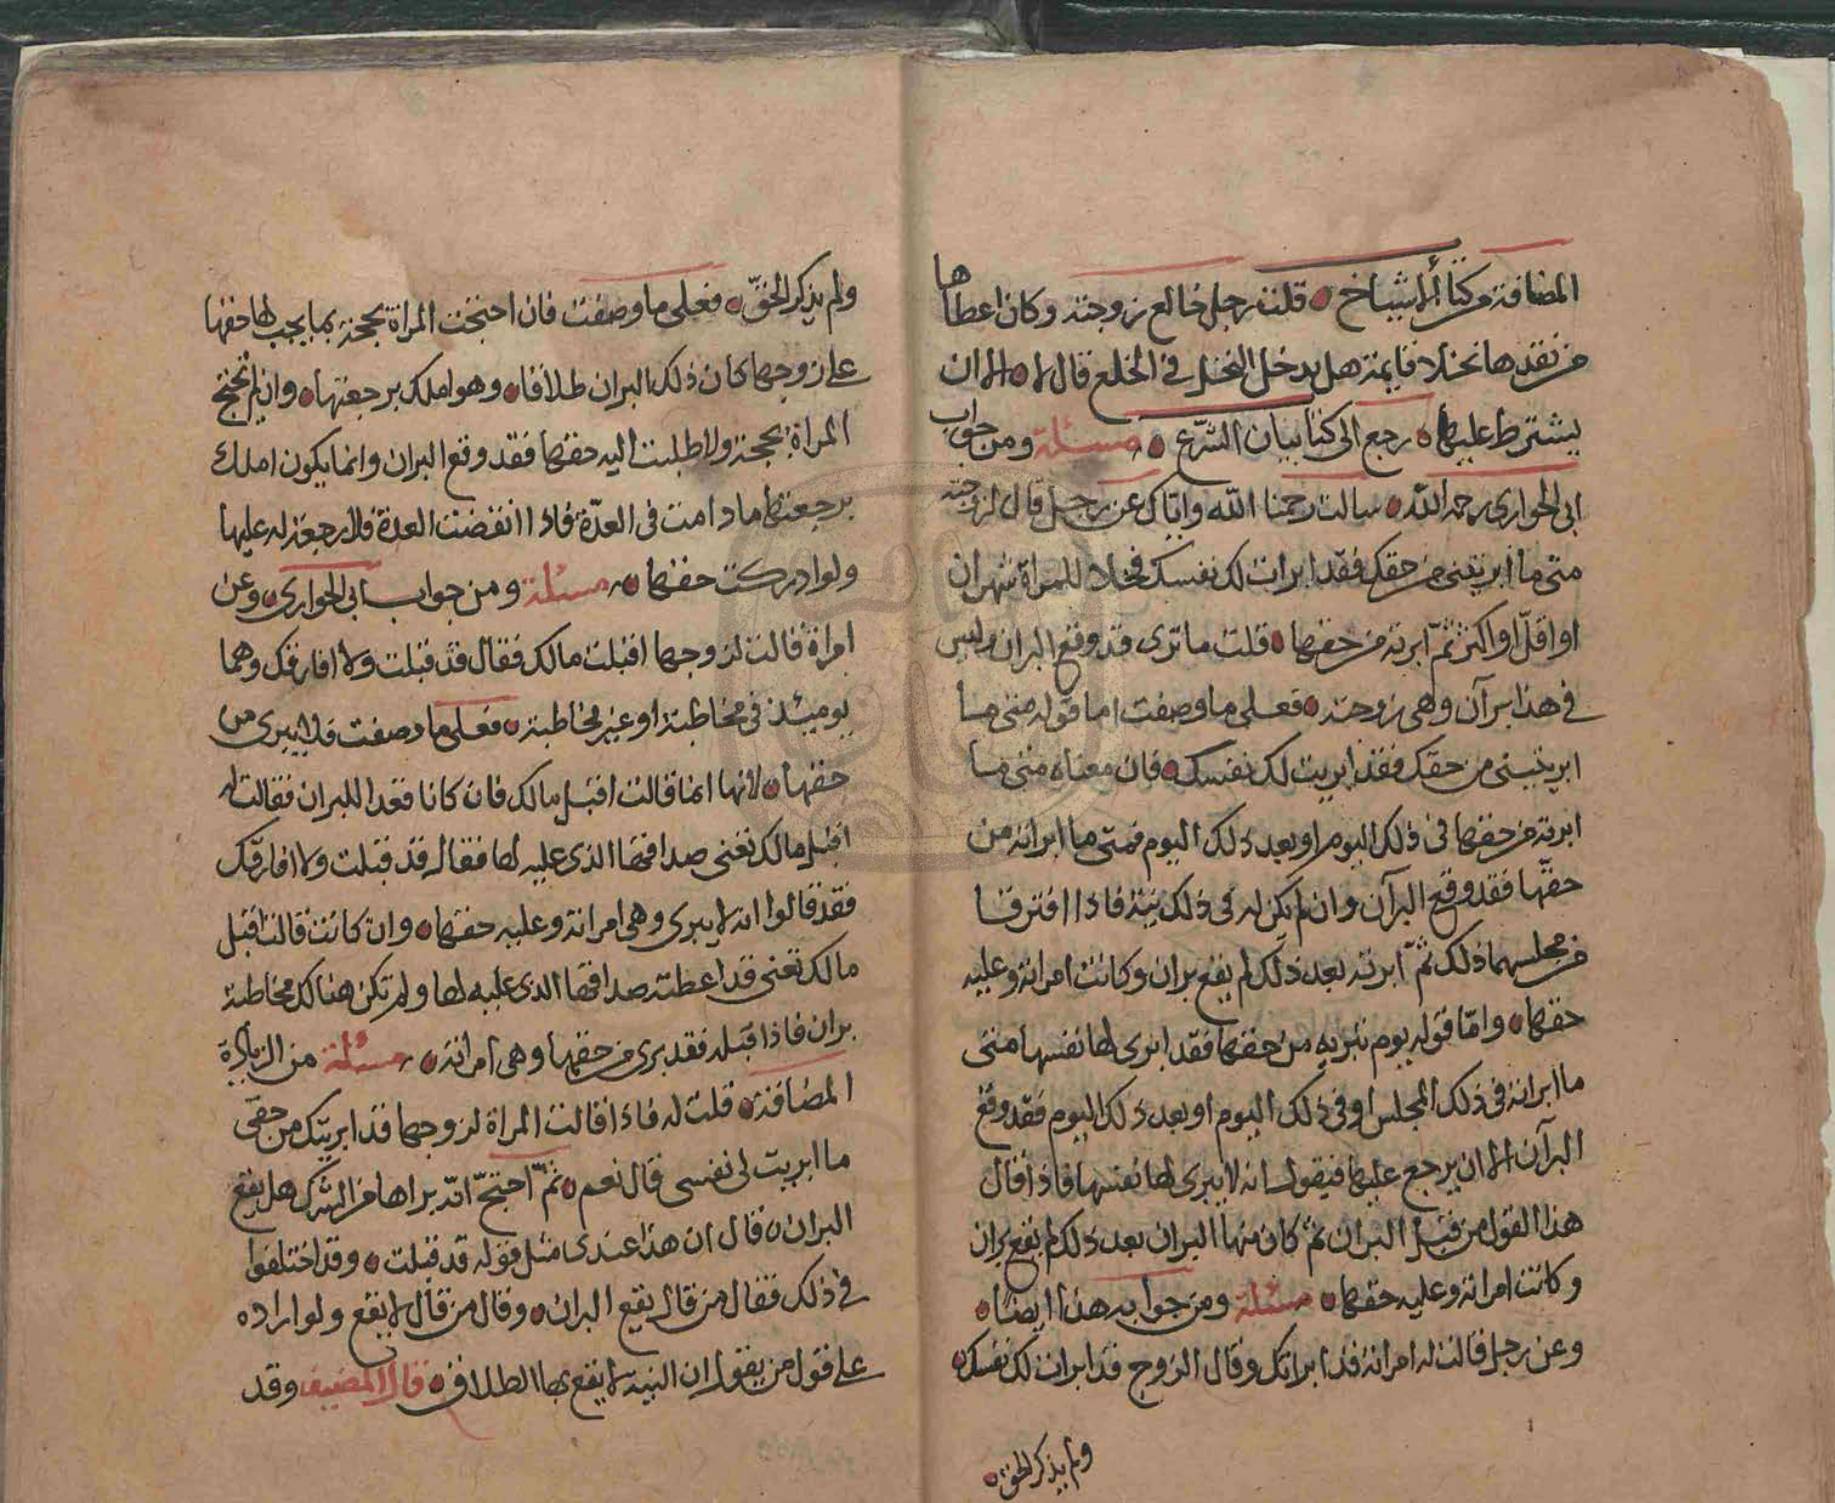 المضافة من كتاب الاشياخ ه قلت رجل خالع زوجته وكان اعطاها
من نقدها نخلا قايمة هل يدخل النخل في الخلع قال لا ه الا ان
يشترط عليها ه رجع الى كتاب بيان الشرع ه مسئلة ومن جواب
ابي الحواري رحمه الله ه سالت رحمنا الله واياك عن رجل قال لزوجته
متى ما ابريتني من حقك فقد ابرات لك نفسك فخلا للمراة شهران
او اقل او اكثر ثم ابرته من حقها ه قلت ما ترى قد وقع البران وليس
في هذا برآن وهي زوجته ه فعلى ما وصفت اما قوله متى ما
ابريتيني من حقك فقد ابريت لك نفسك ه فان معناه متى ما
ابرته من حقها في ذلك اليوم او بعد ذلك اليوم فمتى ما ابراته من
حقها فقد وقع البرآن وان لم يكن له في ذلك نية فاذا افترقا
من مجلسهما ذلك ثم ابرته بعد ذلك لم يقع بران وكانت امراته وعليه
حقها ه واما قوله يوم تبريه من حقها فقد ابرى لها نفسها متى
ما ابراته في ذلك المجلس او في ذلك اليوم او بعد ذلك اليوم فقد وقع
البرآن الا ان يرجع عليها فيقول انه لا يبرى لها نفسها فاذا قال
هذا القول من قبل البران ثم كان منها البران بعد ذلك لم يقع بران
وكانت امراته وعليه حقها ه مسئلة ومن جوابه هذا ايضا ه
وعن رجل قالت له امراته قد ابراتك وقال الزوج قد ابرات لك نفسك ه
ولم يذكر الحق ه
ولم يذكر الحق ه فعلى ما وصفت فان احتجت المراة بحجة بما يجب لها حقها
على زوجها كان ذلك البران طلاقا ه وهو املك برجعتها ه وان لم تحتج
المراة بحجة ولا طلبت اليه حقها فقد وقع البران وانما يكون املك
برجعتها ما دامت في العدة فاذا انقضت العدة فلا رجعة له عليها
ولو ادركت حقها ه مسئلة ومن جواب ابي الحواري ه وعن
امراة قالت لزوجها اقبلت مالك فقال قد قبلت ولا افارقك وهما
يوميئذ في مخاطبة او غير مخاطبة ه فعلى ما وصفت فلا يبرى من
حقها ه لانها انما قالت اقبل مالك فان كانا قعدا للبران فقالت له
اقبل مالك تعني صداقها الذي عليه لها فقال قد قبلت ولا افارقك
فقد قالوا انه لا يبرى وهي امراته وعليه حقها ه وان كانت قالت اقبل
مالك تعني قد اعطته صداقها الذي عليه لها ولم تكن هنالك مخاطبة
بران فاذا قبله فقد برى من حقها وهي امراته ه مسئلة من الزيادة
المضافة ه قلت له فاذا قالت المراة لزوجها قد ابريتك من حقي
ما ابريت لي نفسي قال نعم ه ثم احتج انه براها من الشرك هل يقع
البران ه قال ان هذا عندي مثل قوله قد قبلت ه وقد اختلفوا
في ذلك فقال من قال يقع البران ه وقال من قال لا يقع ولو اراده
على قول من يقول ان النية لا يقع بها الطلاق ه قال المضيف وقد